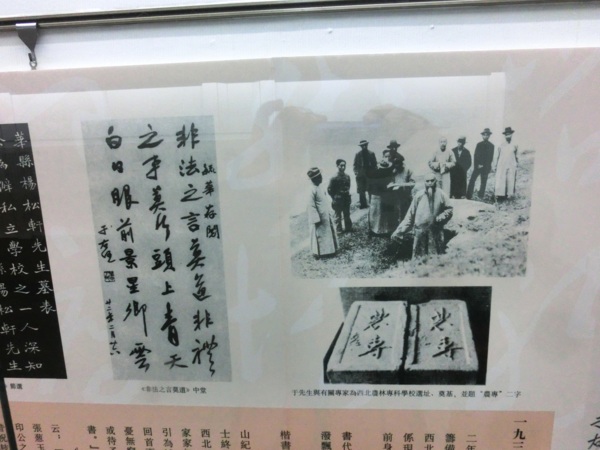 華縣楊松軒先生墓表
私立學校之一人深知
楊松軒先生
節選
非法之言莫道非禮
之事莫行頭上青天
白日眼前景星卿雲
毓華存閱
于右任
《非法之言莫道》中堂
農專
農專
于先生與有關專家為西北農林專科學校選址、奠基、並題“農專”二字
一九三
二年
籌備
西北
係現
前身
書代
楷書
山紀
士終
西北
家家
引為
回首
憂無
或待
書。”
云，
印公之